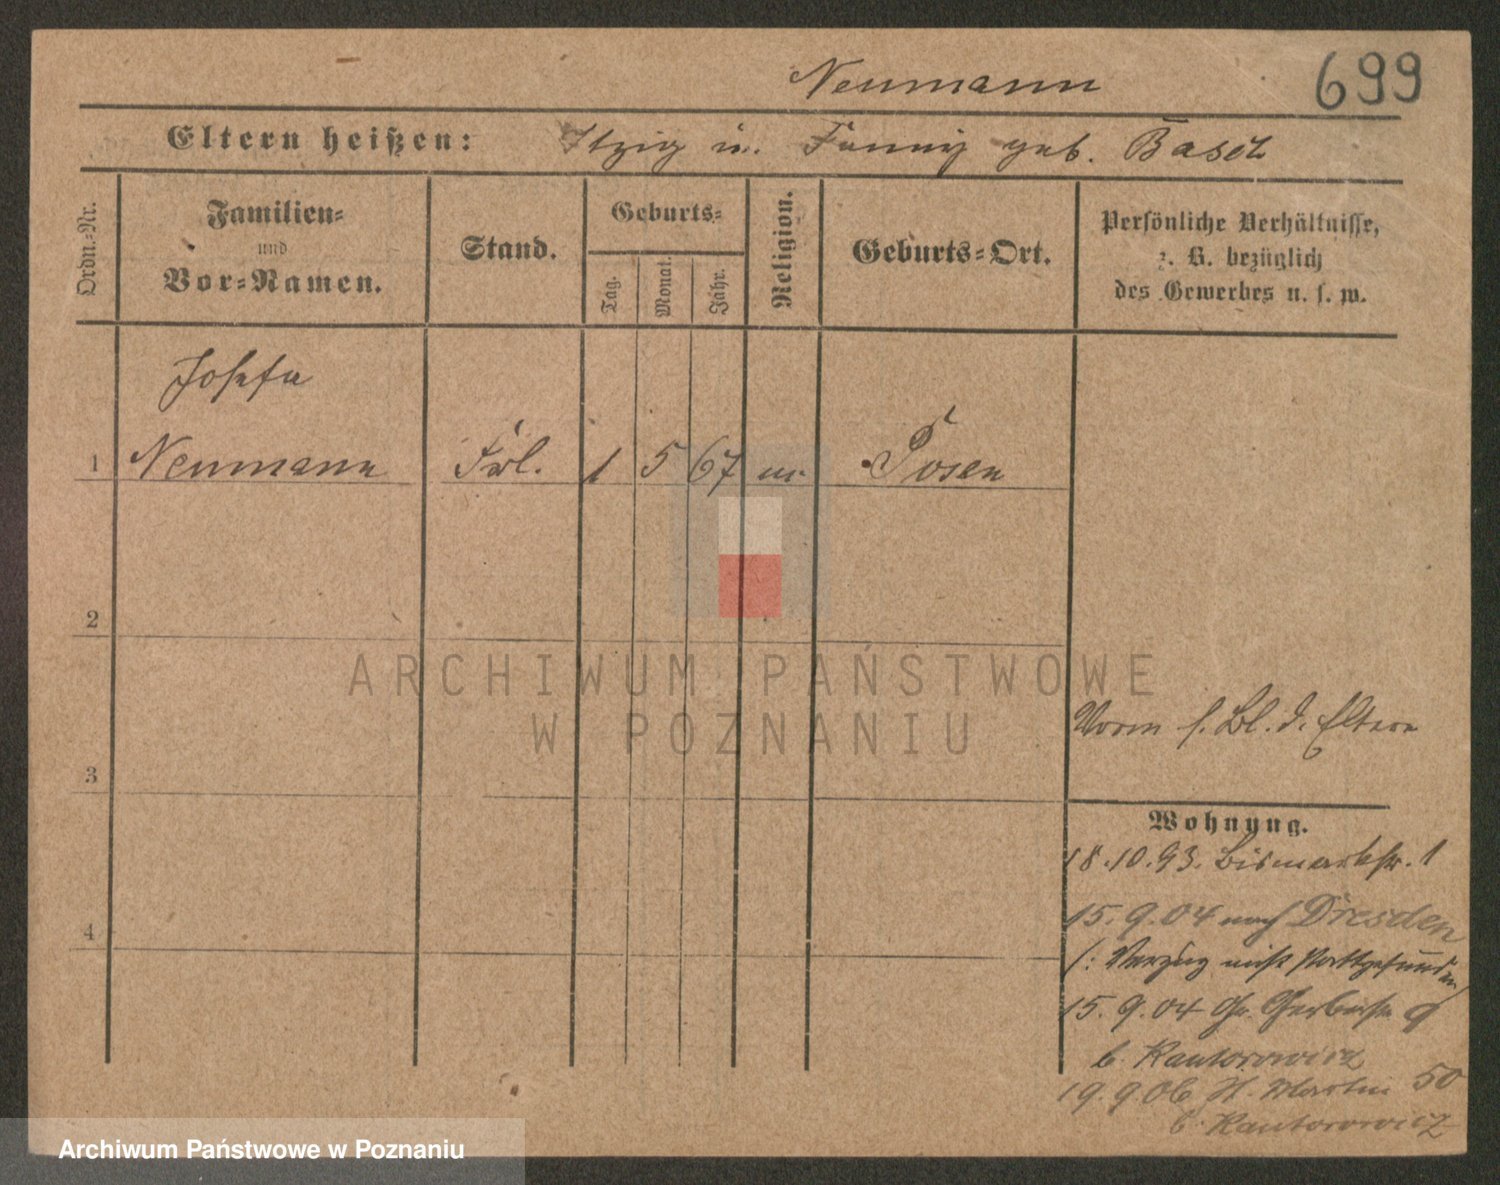 Neumann
699
Eltern heißen: Itzig u. Fanny geb. Basch
Ordn.-Nr.
Familien-
und
Vor-Namen.
Stand.
Geburts-
Tag.
Monat.
Jahr.
Religion.
Geburts-Ort.
Persönliche Verhältnisse,
z. B. bezüglich
des Gewerbes u. s. w.
Josefa
1 Neumann Frl. 1 5 67 m. Posen
2
ARCHIWUM PAŃSTWOWE
W POZNANIU
Vorm s. Bl. d. Eltern
3
Wohnung.
18.10.93. Bismarckstr. 1
15.9.04 nach Dresden
4
/: Verzug nicht stattgefunden
15.9.04 Gr. Gerberstr 9
b. Kantorowicz
19.9.06 St. Martin 50
b. Kantorowicz
Archiwum Państwowe w Poznaniu